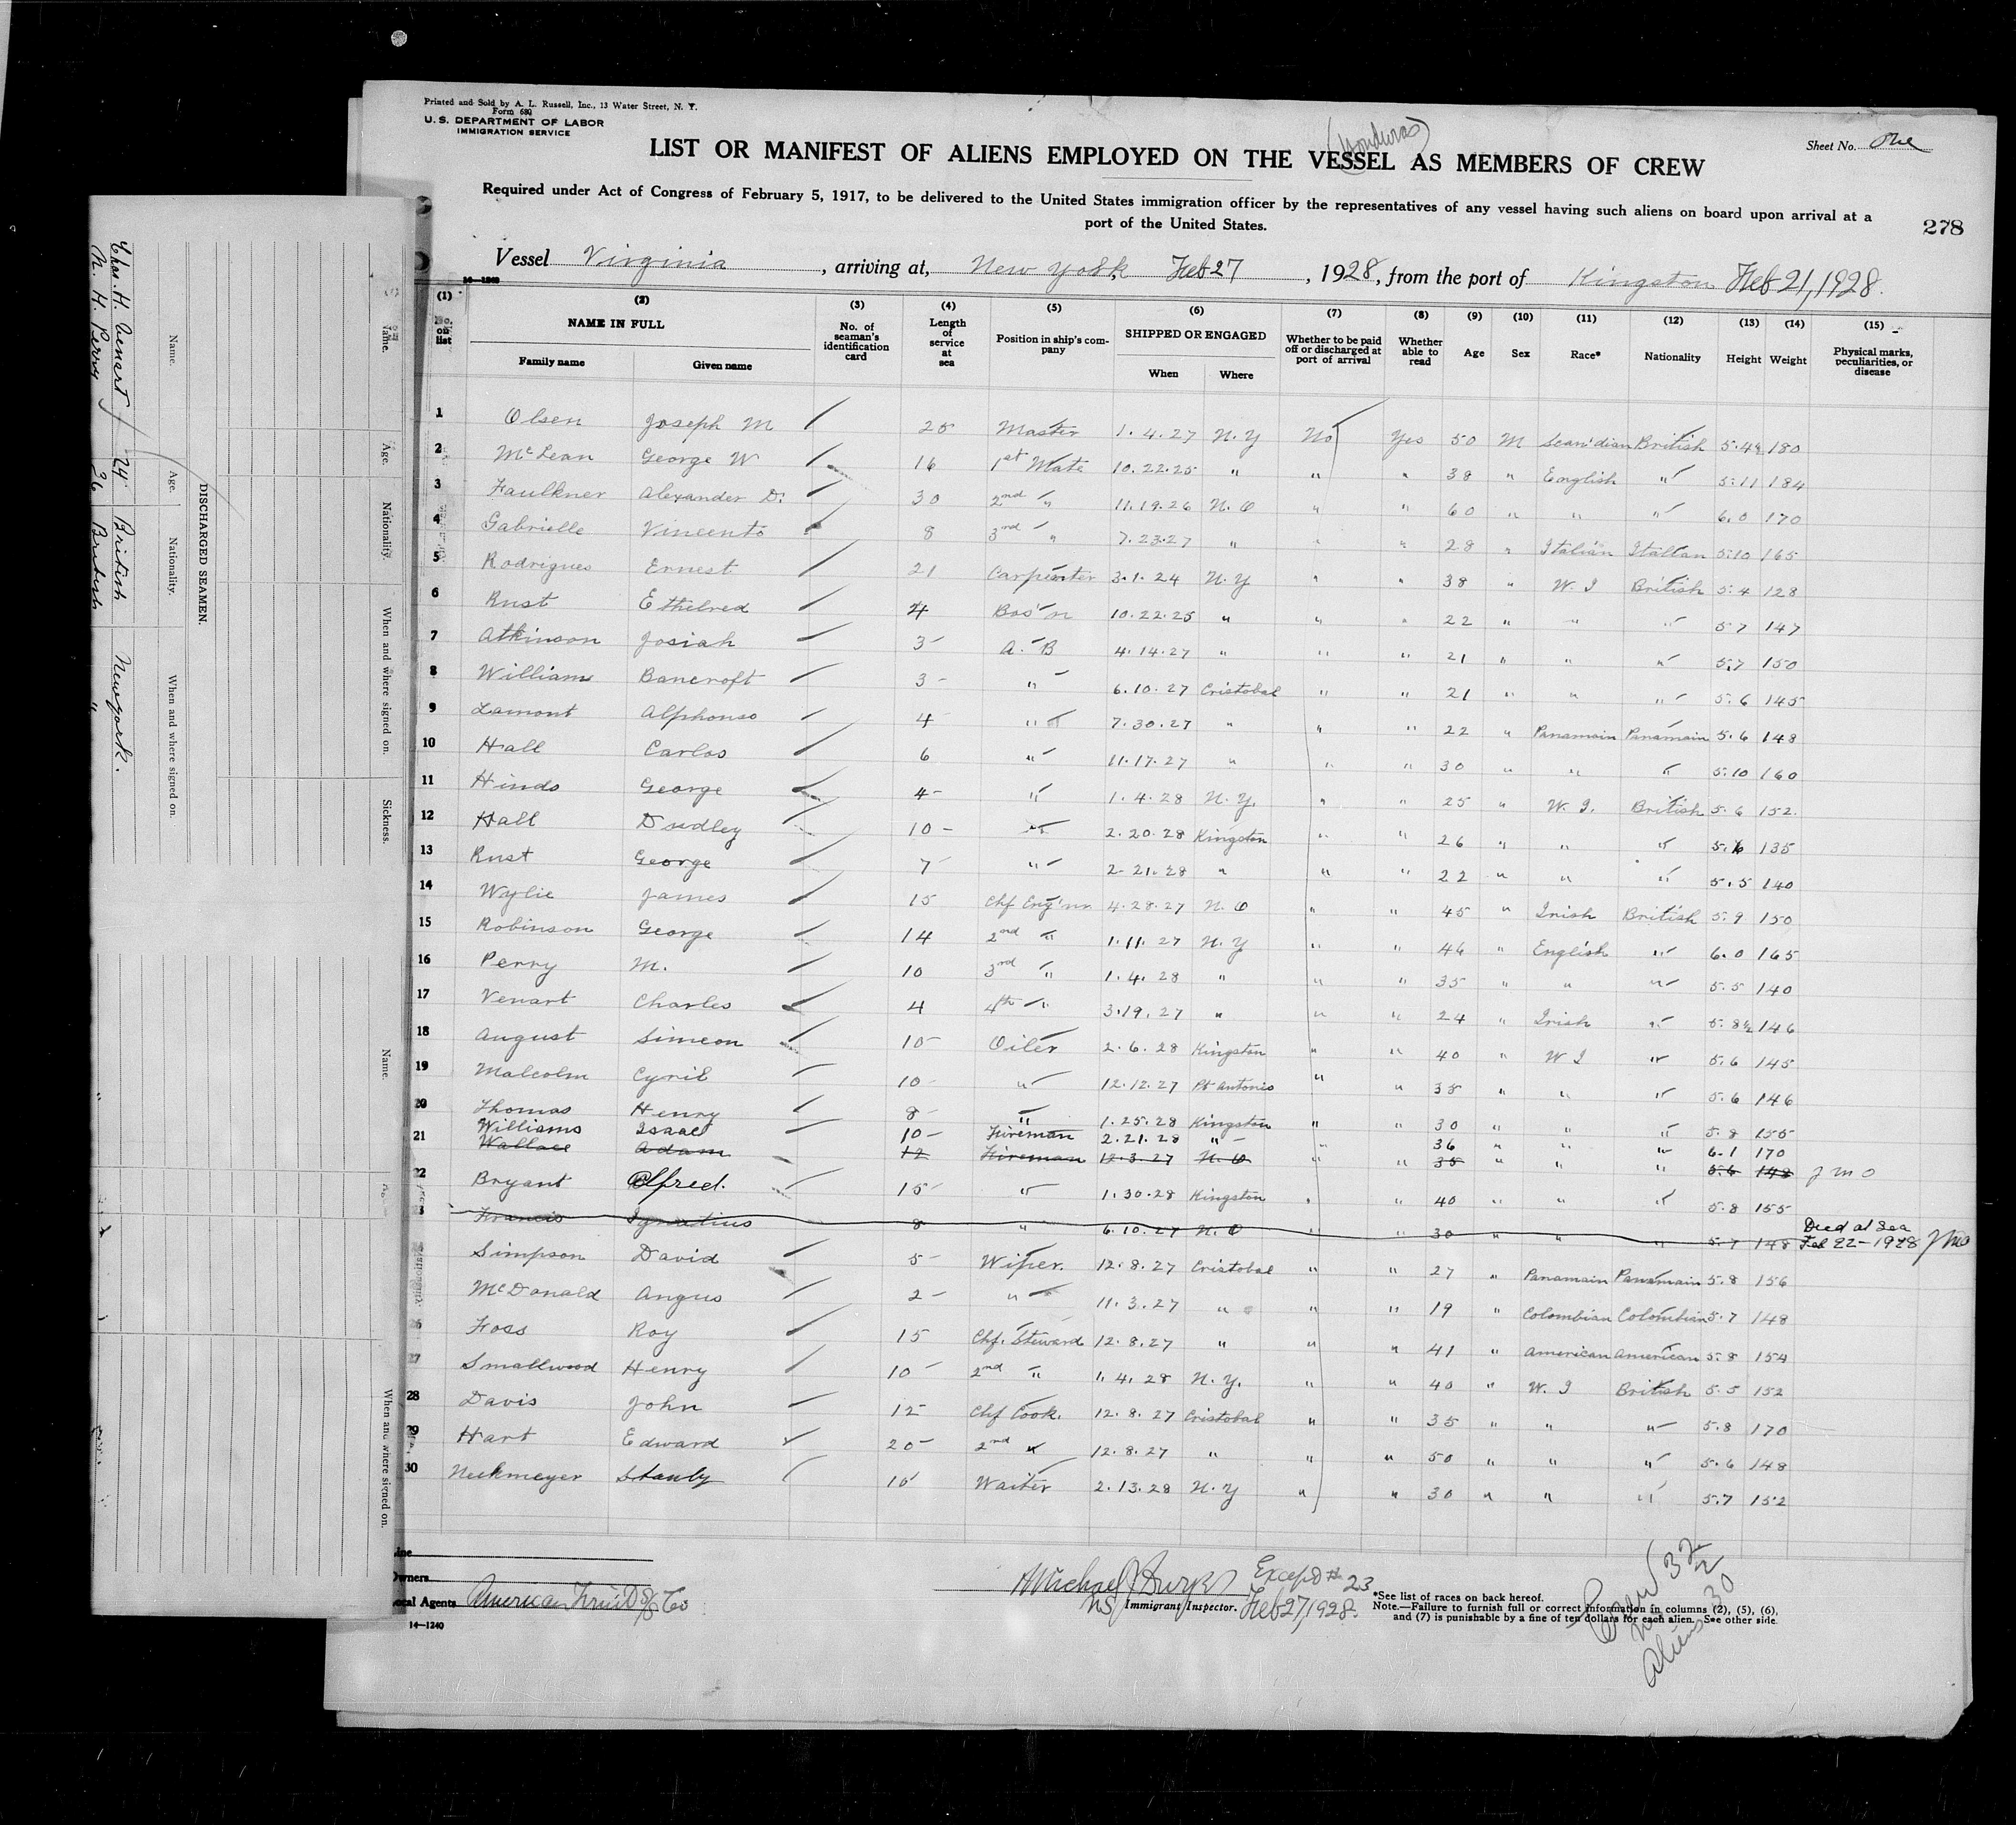 Printed and Sold by A. L. Russell, Inc., 13 Water Street, N. Y.
Form 680
U. S. DEPARTMENT OF LABOR
IMMIGRATION SERVICE
(Honduras)
Sheet No. One
LIST OR MANIFEST OF ALIENS EMPLOYED ON THE VESSEL AS MEMBERS OF CREW
Required under Act of Congress of February 5, 1917, to be delivered to the United States immigration officer by the representatives of any vessel having such aliens on board upon arrival at a
port of the United States.
278
Vessel Virginia, arriving at, New York Feb 27, 1928, from the port of Kingston Feb 21, 1928.
(1) (2) (3) (4) (5) (6) (7) (8) (9) (10) (11) (12) (13) (14) (15)
No. on list NAME IN FULL Family name Given name No. of seaman's identification card Length of service at sea Position in ship's company SHIPPED OR ENGAGED When Where Whether to be paid off or discharged at port of arrival Whether able to read Age Sex Race* Nationality Height Weight Physical marks, peculiarities, or disease
1 Olsen Joseph M 25 Master 1.4.27 N.Y No Yes 50 M Scan'dian British 5.4½ 180
2 McLean George W 16 1st Mate 10.22.25 " " " 38 " English " 5.11 184
3 Faulkner Alexander D. 30 2nd " 11.19.26 N.O " " 60 " " " 6.0 170
4 Gabrielle Vincento 8 3rd " 7.23.27 " " " 28 " Italian Italian 5.10 165
5 Rodrigues Ernest 21 Carpenter 3.1.24 N.Y " " 38 " W.I British 5.4 128
6 Rust Ethelred 4 Bos'n 10.22.25 " " " 22 " " " 5.7 147
7 Atkinson Josiah 3 A.B 4.14.27 " " " 21 " " " 5.7 150
8 Williams Bancroft 3 " 6.10.27 Cristobal " " 21 " " " 5.6 145
9 Lamont Alphonso 4 " 7.30.27 " " " 22 " Panamain Panamain 5.6 148
10 Hall Carlos 6 " 11.17.27 " " " 30 " " " 5.10 160
11 Hinds George 4 " 1.4.28 N.Y. " " 25 " W.I. British 5.6 152
12 Hall Dudley 10 " 2.20.28 Kingston " " 26 " " " 5.6 135
13 Rust George 7 " 2.21.28 " " " 22 " " " 5.5 140
14 Wylie James 15 Chf Eng'nr 4.28.27 N.O " " 45 " Irish British 5.9 150
15 Robinson George 14 2nd " 1.11.27 N.Y " " 46 " English " 6.0 165
16 Perry M. 10 3rd " 1.4.28 " " " 35 " " " 5.5 140
17 Venart Charles 4 4th " 3.19.27 " " " 24 " Irish " 5.8½ 146
18 August Simeon 10 Oiler 2.6.28 Kingston " " 40 " W I " 5.6 145
19 Malcolm Cyril 10 " 12.12.27 Pt Antonio " " 38 " " " 5.6 146
20 Thomas Henry 8 " 1.25.28 Kingston " " 30 " " " 5.8 155
Williams Isaac 10 Fireman 2.21.28 " 36 " " " 6.1 170
21 Wallace Adam 12 Fireman 12.3.27 N.O " " 35 " " " 5.6 148 J M O
22 Bryant Alfred. 15 " 1.30.28 Kingston " " 40 " " " 5.8 155
23 Francis Ignatius 8 " 6.10.27 N.O " " 30 " " " 5.7 148 Died at Sea Feb 22-1928 JMO
Simpson David 5 Wiper. 12.8.27 Cristobal " " 27 " Panamain Panamain 5.8 156
McDonald Angus 2 " 11.3.27 " " " 19 " Colombian Colombian 5.7 148
26 Foss Roy 15 Chf. Steward 12.8.27 " " " 41 " American American 5.8 154
27 Smallwood Henry 10 2nd " 1.4.28 N.Y. " " 40 " W.I British 5.5 152
28 Davis John 12 Chf Cook. 12.8.27 Cristobal " " 35 " " " 5.8 170
29 Hart Edward 20 2nd " 12.8.27 " " " 50 " " " 5.6 148
30 Stanly 10 Waiter 2.13.28 N.Y " " 30 " " " 5.7 152
Owners
Local Agents American Fruit & SS Co
14—1240
Except # 23
Immigrant Inspector. Feb 27, 1928.
*See list of races on back hereof.
Note.—Failure to furnish full or correct information in columns (2), (5), (6),
and (7) is punishable by a fine of ten dollars for each alien. See other side.
Crew 32
Aliens 30
DISCHARGED SEAMEN.
Name. Age. Nationality. When and where signed on.
Chas. H. Venart 24 British Newyork.
M. H. Perry 36 British "
Name. Age. Nationality. When and where signed on. Sickness.
Name. When and where signed on.